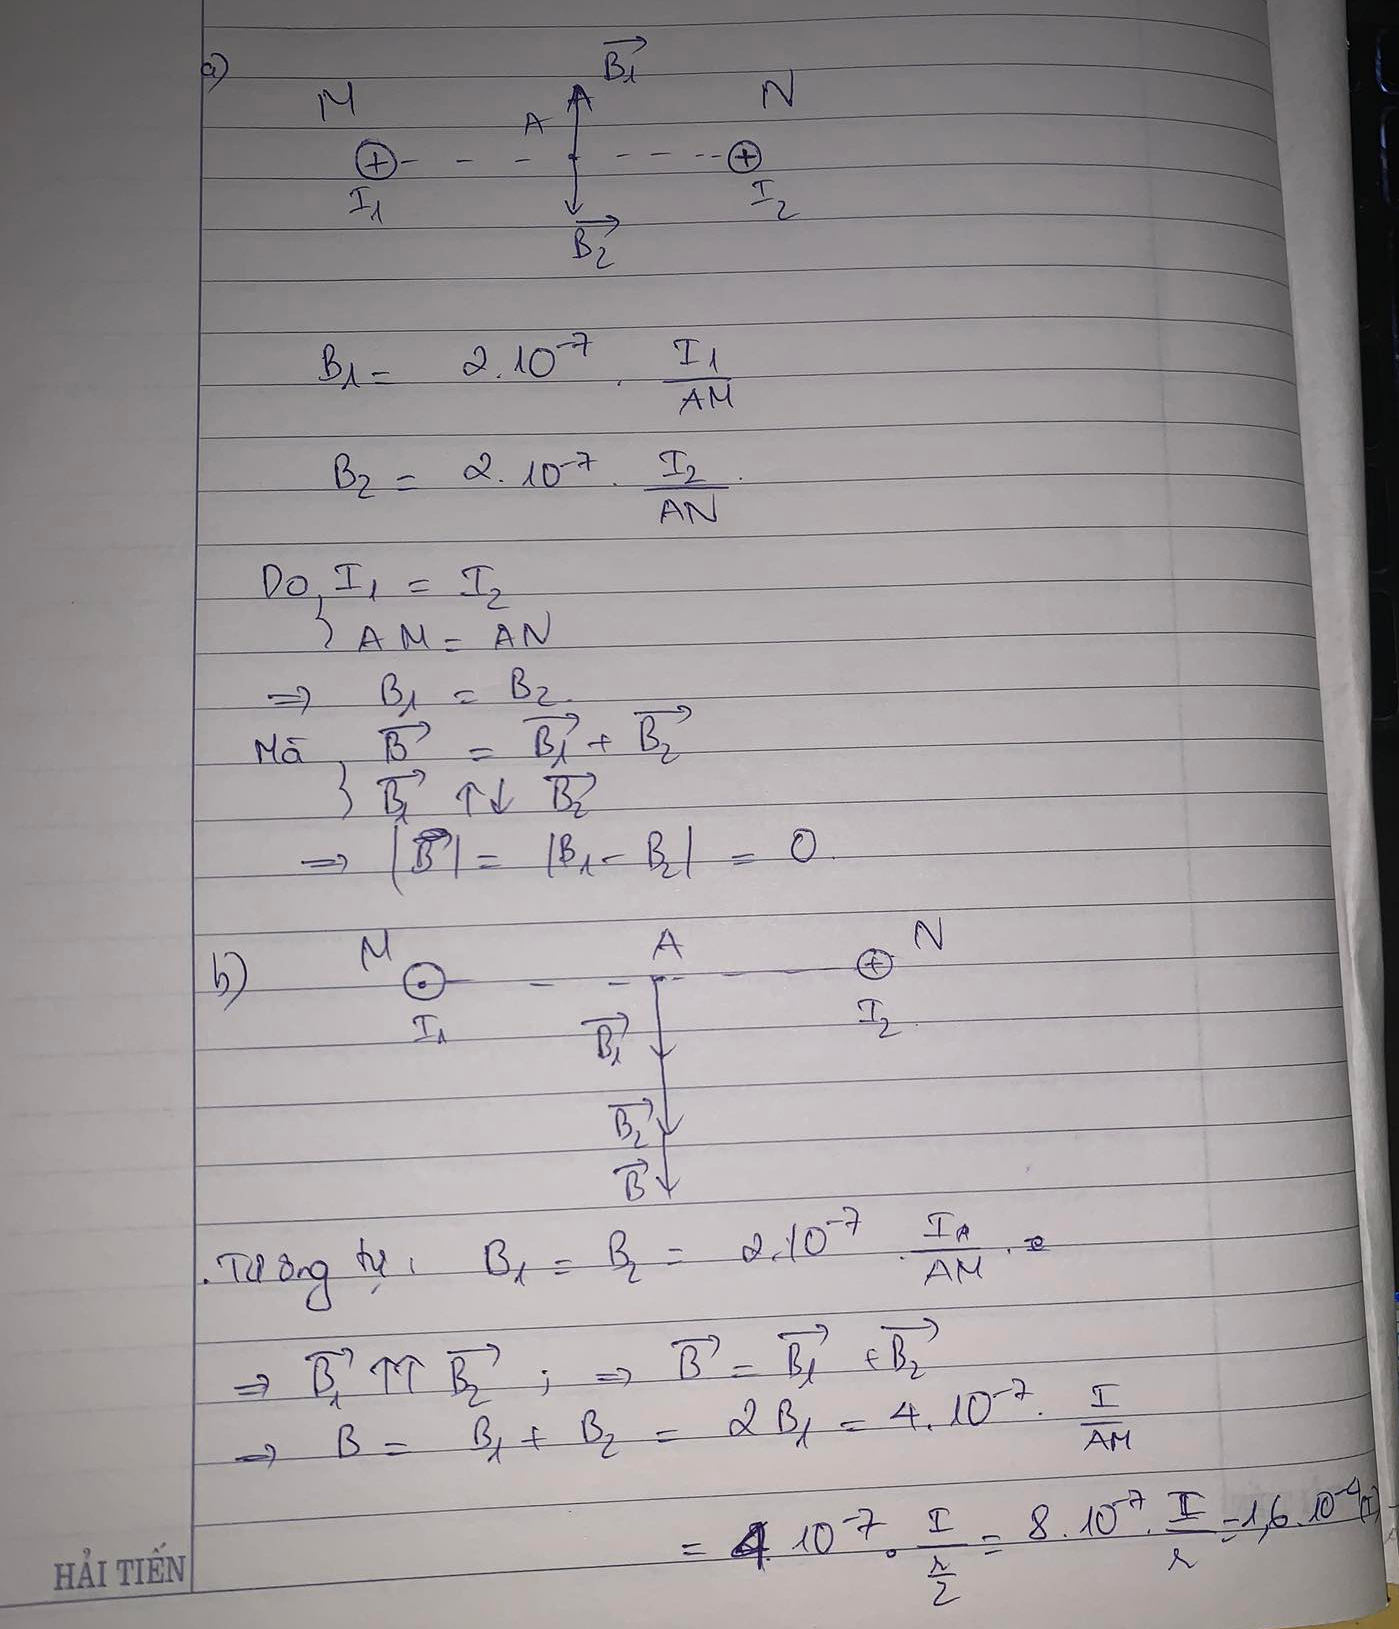 a)
M A B₁→ N
I₁ B₂→ I₂
B₁ = 2.10⁻⁷ . I₁/AM
B₂ = 2.10⁻⁷ . I₂/AN
Do { I₁ = I₂
AM = AN
⇒ B₁ = B₂.
Mà { B→ = B₁→ + B₂→
B₁→ ↑↓ B₂→
⇒ |B→| = |B₁ - B₂| = 0.
b) M A N
I₁ I₂
B₁→
B₂→
B→
. Tương tự: B₁ = B₂ = 2.10⁻⁷ . I₁/AM .
⇒ B₁→ ↑↑ B₂→ ; ⇒ B→ = B₁→ + B₂→
⇒ B = B₁ + B₂ = 2B₁ = 4.10⁻⁷ . I/AM
= 4 10⁻⁷ . I/(r/2) = 8.10⁻⁷ . I/r = 1,6.10⁻⁴ (T)
HẢI TIẾN